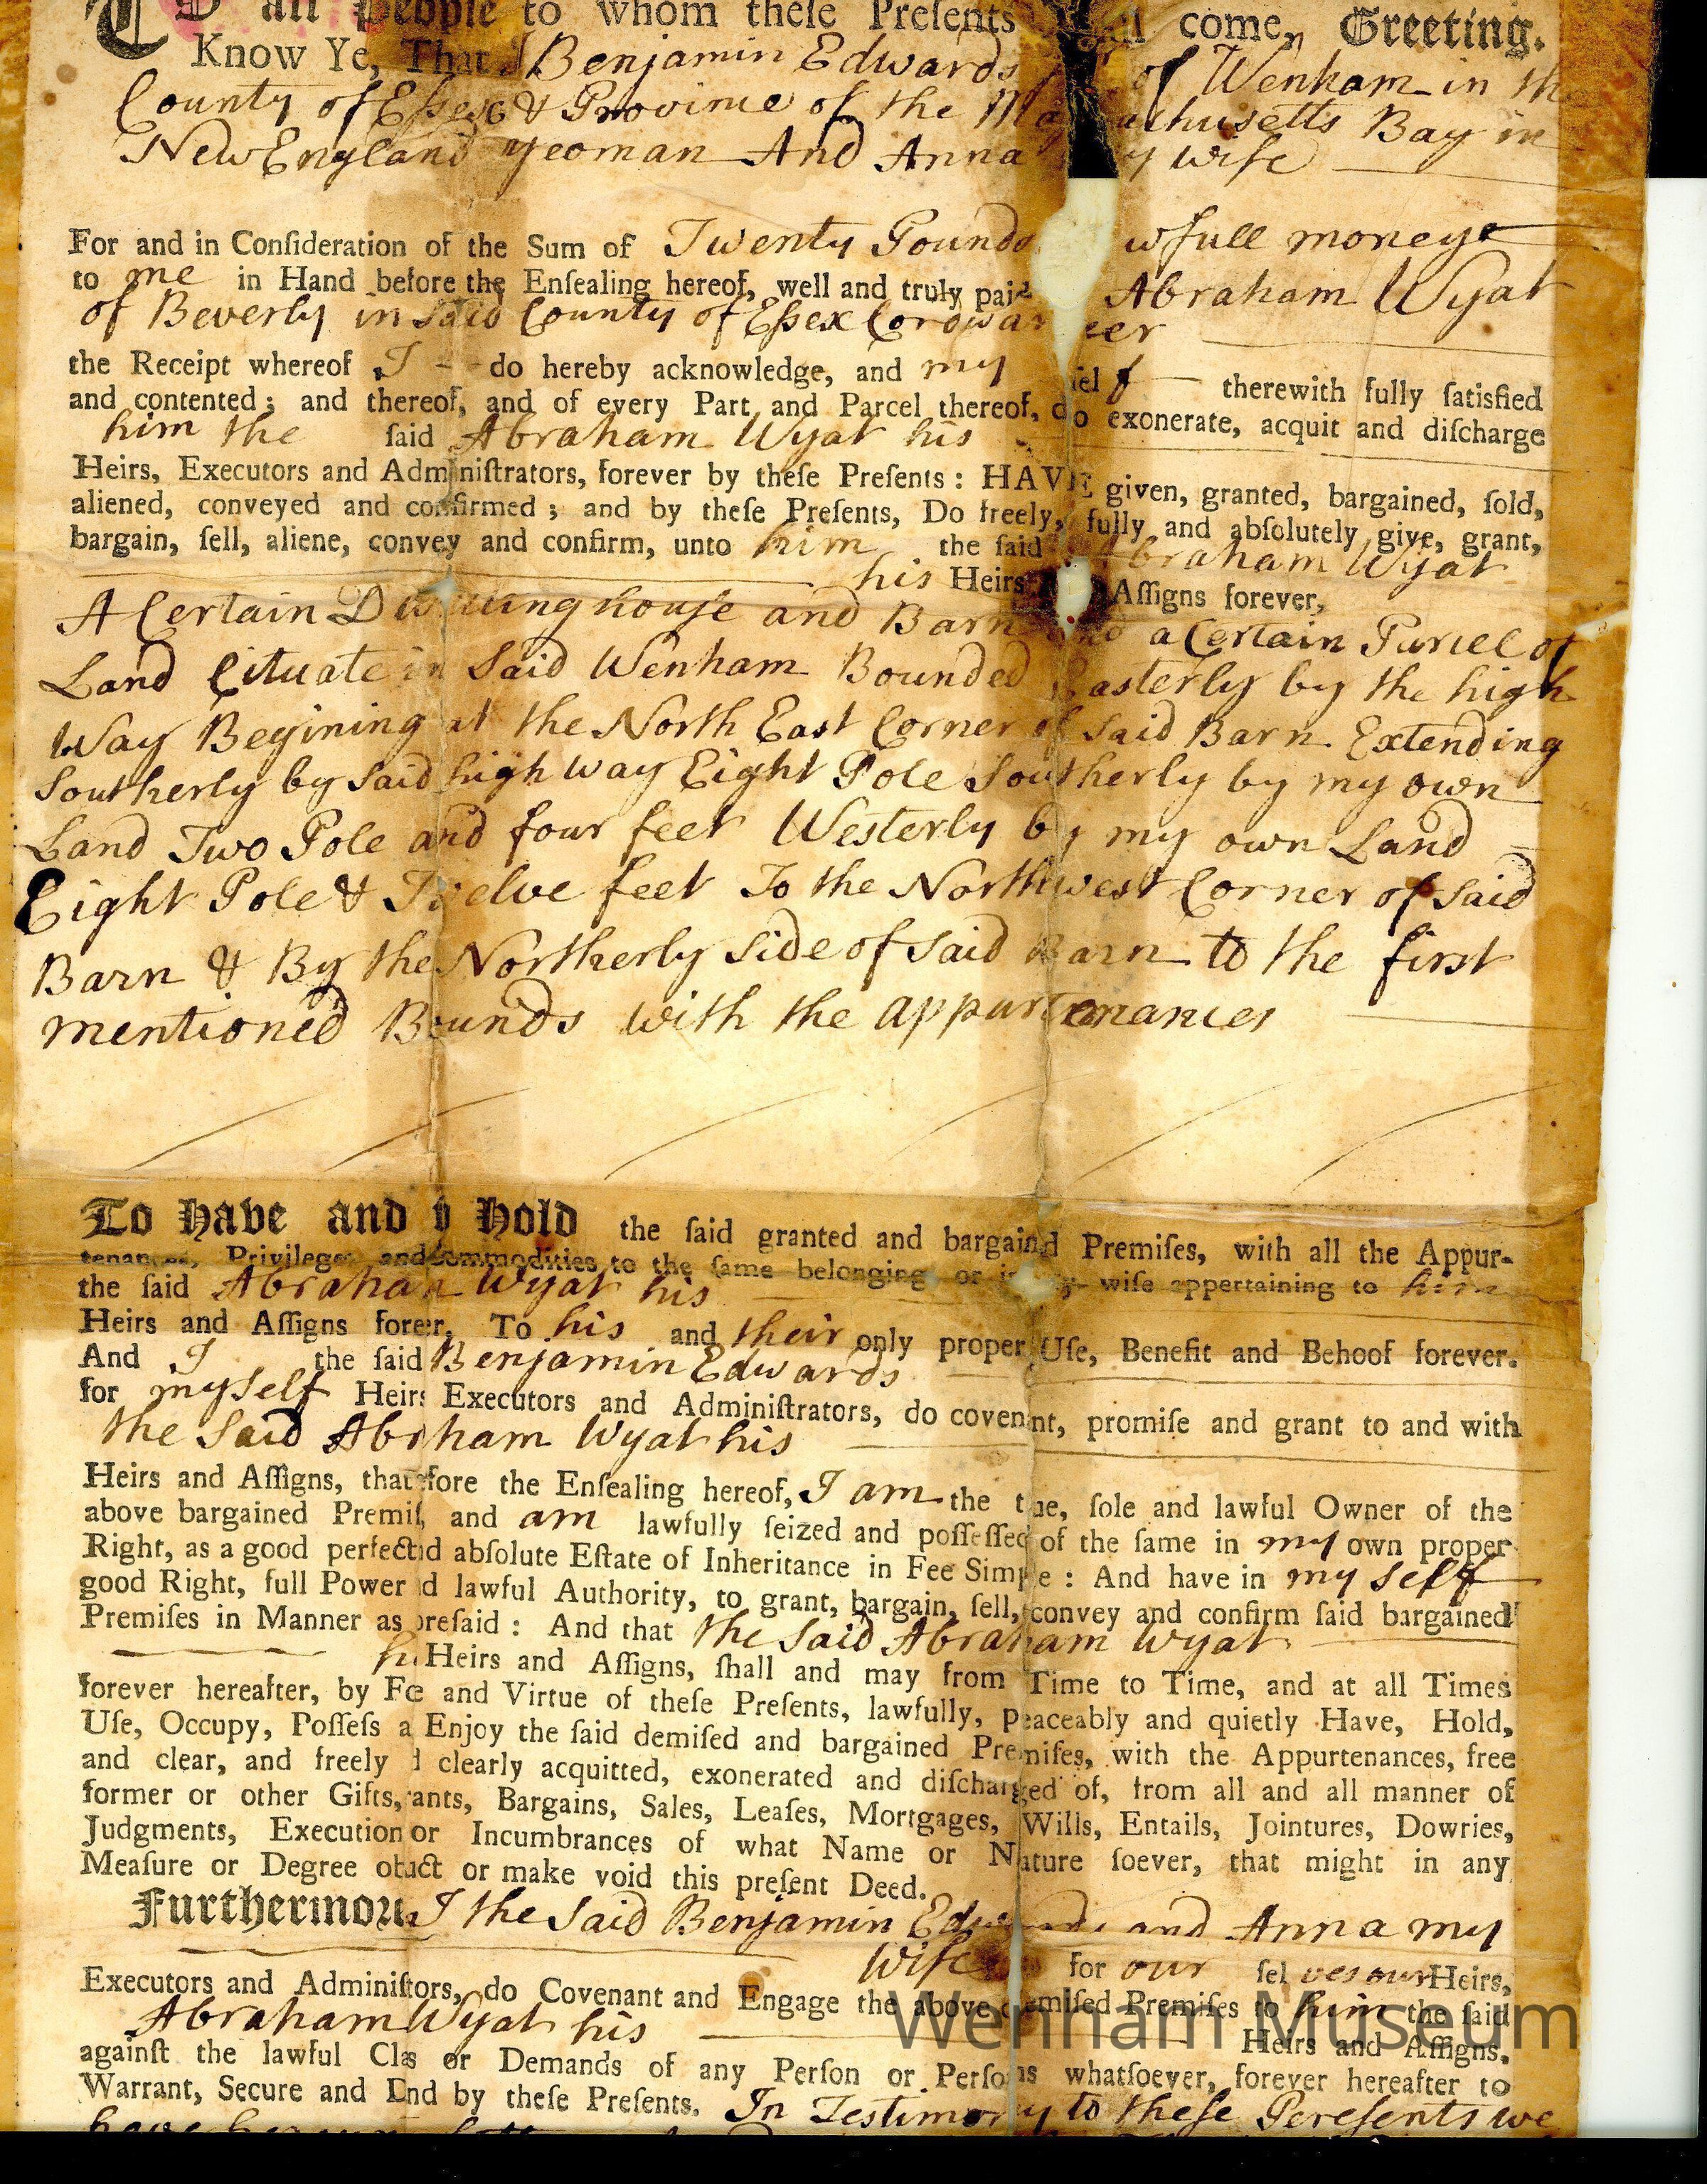 TO all People to whom theſe Preſents come, Greeting.
Know Ye, That I Benjamin Edwards of Wenham in the
County of Eſsex & Province of the Massachusetts Bay in
New England yeoman And Anna my wife
For and in Conſideration of the Sum of Twenty Pounds wfull money
to me in Hand before the Enſealing hereof, well and truly paid Abraham Wyat
of Beverly in Said County of Eſsex Cordwaneer
the Receipt whereof I do hereby acknowledge, and my ſelf therewith fully ſatisfied
and contented; and thereof, and of every Part and Parcel thereof, do exonerate, acquit and diſcharge
him the ſaid Abraham Wyat his
Heirs, Executors and Adminiſtrators, forever by theſe Preſents: HAVE given, granted, bargained, ſold,
aliened, conveyed and confirmed; and by theſe Preſents, Do freely, fully and abſolutely give, grant,
bargain, ſell, aliene, convey and confirm, unto him the ſaid Abraham Wyat
his Heirs Aſſigns forever,
A Certain Dwelling houſe and Barn and a Certain Parcel of
Land Cituate in Said Wenham Bounded Easterly by the high
Way Begining at the North East Corner of Said Barn Extending
Southerly by Said high way Eight Pole Southerly by my own
Land Two Pole and four feet Westerly by my own Land
Eight Pole & Twelve feet To the Northwest Corner of Said
Barn & By the Northerly Side of Said Barn to the first
mentioned Bounds with the appurtenances
To Have and to Hold the ſaid granted and bargained Premiſes, with all the Appur-
tenances, Privileges and Commodities to the ſame belonging or in any wiſe appertaining to him
the ſaid Abraham Wyat his
Heirs and Aſſigns forever, To his and their only proper Uſe, Benefit and Behoof forever.
And I the ſaid Benjamin Edwards
for my Self Heirs Executors and Adminiſtrators, do covenant, promiſe and grant to and with
the Said Abraham Wyat his
Heirs and Aſſigns, that before the Enſealing hereof, I am the true, ſole and lawful Owner of the
above bargained Premiſes, and am lawfully ſeized and poſſeſſed of the ſame in my own proper
Right, as a good perfect and abſolute Eſtate of Inheritance in Fee Simple: And have in my Self
good Right, full Power and lawful Authority, to grant, bargain, ſell, convey and confirm ſaid bargained
Premiſes in Manner as aforeſaid: And that the Said Abraham Wyat
his Heirs and Aſſigns, ſhall and may from Time to Time, and at all Times
forever hereafter, by Force and Virtue of theſe Preſents, lawfully, peaceably and quietly Have, Hold,
Uſe, Occupy, Poſſeſs and Enjoy the ſaid demiſed and bargained Premiſes, with the Appurtenances, free
and clear, and freely and clearly acquitted, exonerated and diſcharged of, from all and all manner of
former or other Gifts, Grants, Bargains, Sales, Leaſes, Mortgages, Wills, Entails, Jointures, Dowries,
Judgments, Executions or Incumbrances of what Name or Nature ſoever, that might in any
Meaſure or Degree obſtruct or make void this preſent Deed.
Furthermore I the Said Benjamin Edwards and Anna my
Wife for our ſelves our Heirs,
Executors and Adminiſtrators, do Covenant and Engage the above demiſed Premiſes to him the ſaid
Abraham Wyat his Heirs and Aſſigns,
againſt the lawful Claims or Demands of any Perſon or Perſons whatſoever, forever hereafter to
Warrant, Secure and Defend by theſe Preſents. In Testimony to theſe Peresents we
have
Wenham Museum